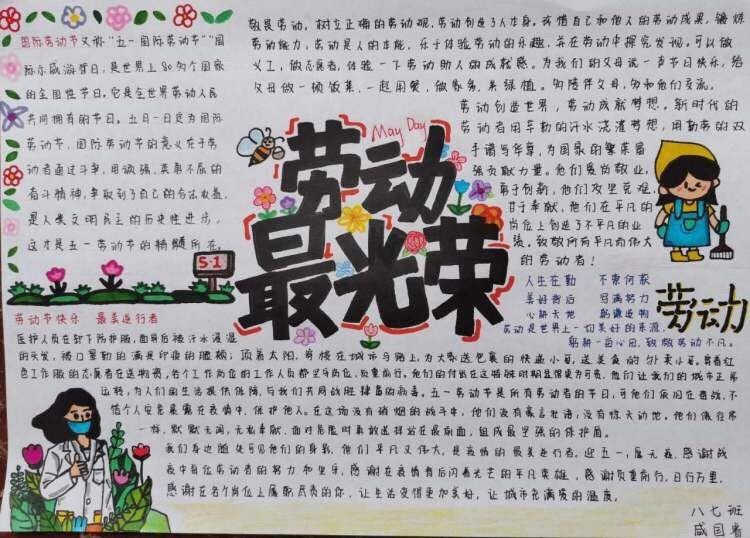 国际劳动节又称“五一国际劳动节”“国
际示威游行日，是世界上80多个国家
的全国性节日。它是全世界劳动人民
共同拥有的节日。五月一日定为国际
劳动节，国际劳动节的意义在于劳
动者通过斗争，用顽强、英勇不屈的
奋斗精神，争取到了自己的合法权益，
是人类文明民主的历史性进步，
这才是五一劳动节的精髓所在。
敬畏劳动。树立正确的劳动观，劳动创造了人本身。珍惜自己和他人的劳动成果，锻炼
劳动能力，劳动是人的本能，乐于体验劳动的乐趣，并在劳动中探究发现。可以做
义工，做志愿者，体验一下劳动助人的成就感。为我们的父母说一声节日快乐，给
父母做一顿饭菜，一起用餐，做家务，养绿植。多陪伴父母，多和他们交流。
劳动创造世界，劳动成就梦想。新时代的
劳动者用辛勤的汗水浇灌梦想，用勤劳的双
手谱写华章，为国家的繁荣富
强贡献力量。他们爱岗敬业、
勇于创新，他们攻坚克难、
甘于奉献，他们在平凡的
岗位上创造了不平凡的业
绩。致敬所有平凡而伟大
的劳动者！
May Day
劳动
最光荣
5·1
人生在勤 不索何获
美好背后 写满努力
心耕天地 躬谦逐物
劳动是世界上一切美好的来源
躬耕一亩心田，致敬劳动不凡。
劳动
劳动节快乐 最美逆行者
医护人员在卸下防护服，面罩后被汗水浸湿
的头发，被口罩勒的满是印痕的脸颊；顶着太阳，穿梭在城市马路上，为大家送包裹的快递小哥，送美食的外卖小哥，穿着红
色工作服的志愿者在送物资，各个工作岗位的工作人员都坚守岗位，负重前行。他们的付出在这特殊时期显得更为可贵，他们让我们的城市正常
运转，为人们的生活提供保障，与我们共同战胜肆虐的病毒。五一劳动节是所有劳动者的节日，可他们依旧在奋战，不
惜个人安危暴露在疫情中，保护他人。在这场没有硝烟的战斗中，他们没有豪言壮语，没有惊天动地，他们像往常
一样，默默无闻，无私奉献，面对危险时勇敢逆行站在最前面，组成最坚强的保护盾。
我们身边随处可见他们的身影，他们平凡又伟大，是疫情的最美逆行者。迎五一，展无卷，感谢战
疫中岗位劳动者的努力和坚守，感谢在疫情背后闪着光芒的平凡英雄，感谢负重前行，日行万里，
感谢在各个岗位上履职尽责的你，让生活变得更加美好，让城市充满爱的温度。
八七班